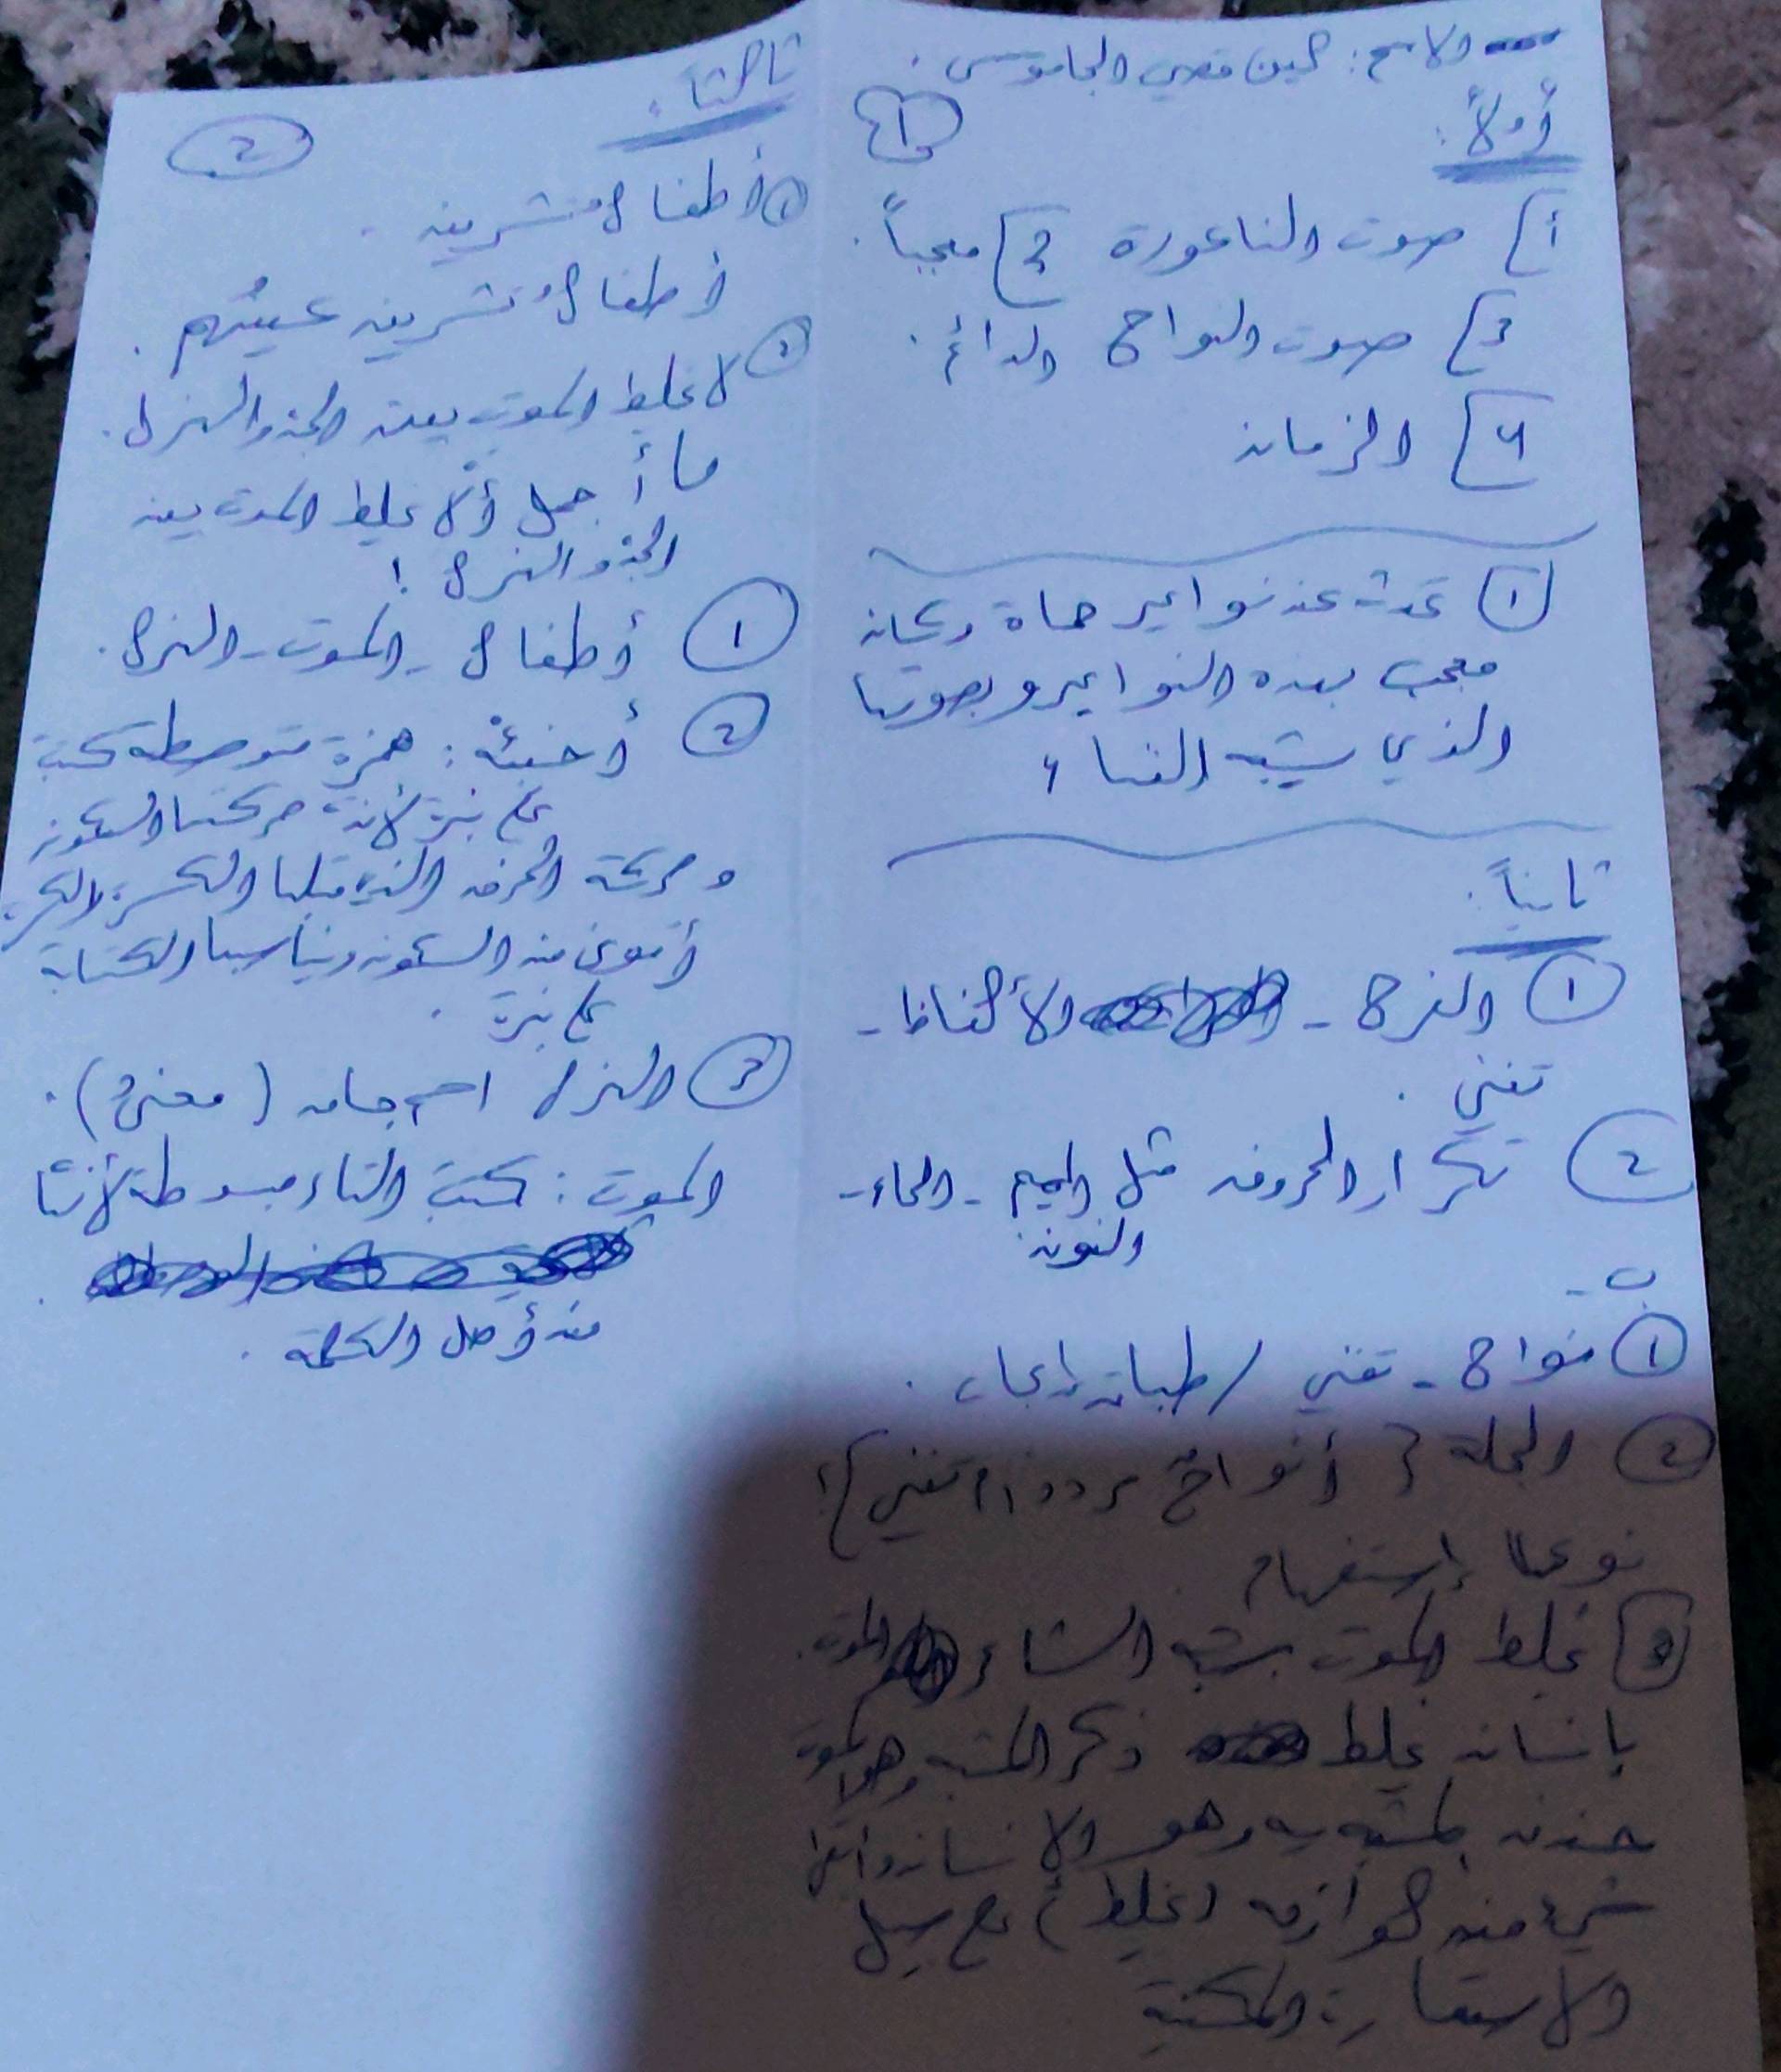 الاسم: لين قصي الجاموس.
أولاً:
1
1] صوت الناعورة 2] معجباً.
3] صوت النواح الدائم.
4] الزمان
1 تحدث عن نواعير حماة وكان
معجب بهذه النواعير وبصوتها
الذي يشبه الغناء
ثانياً:
1 الفرح - الألفاظ -
تغني.
2 تكرار الحروف مثل الميم - الحاء -
النون.
ب -
1 نواح - تغني / طباق إيجاب.
2 الجملة { أنواحٌ تردد أم تغني }:
نوعها إستفهام
3 يخلط الموت شبه الشاعر الموت
بإنسان يخلط ذكر المشبه وهو الموت
حذف المشبه به وهو الإنسان وأبقى
شيء من لوازمه (يخلط) على سبيل
الاستعارة المكنية
ثالثاً:
2
1 أطفال تشرين.
أطفالُ تشرين عينُهم.
2 لا يخلط الموت بين الجد والهزل.
ما أجمل ألّا يخلط الموت بين
الجد والهزل!
1 أطفال - الموت - الهزل.
2 أخبئْه: همزة متوسطة كتبت
على نبرة لأنه حركتها السكون
وحركة الحرف الذي قبلها الكسر، الكسر
أقوى من السكون ويناسبها الكتابة
على نبرة.
3 الهزل اسم جامد (معنىً).
الموت: كتبت التاء مبسوطة لأنها
من أصل الكلمة.